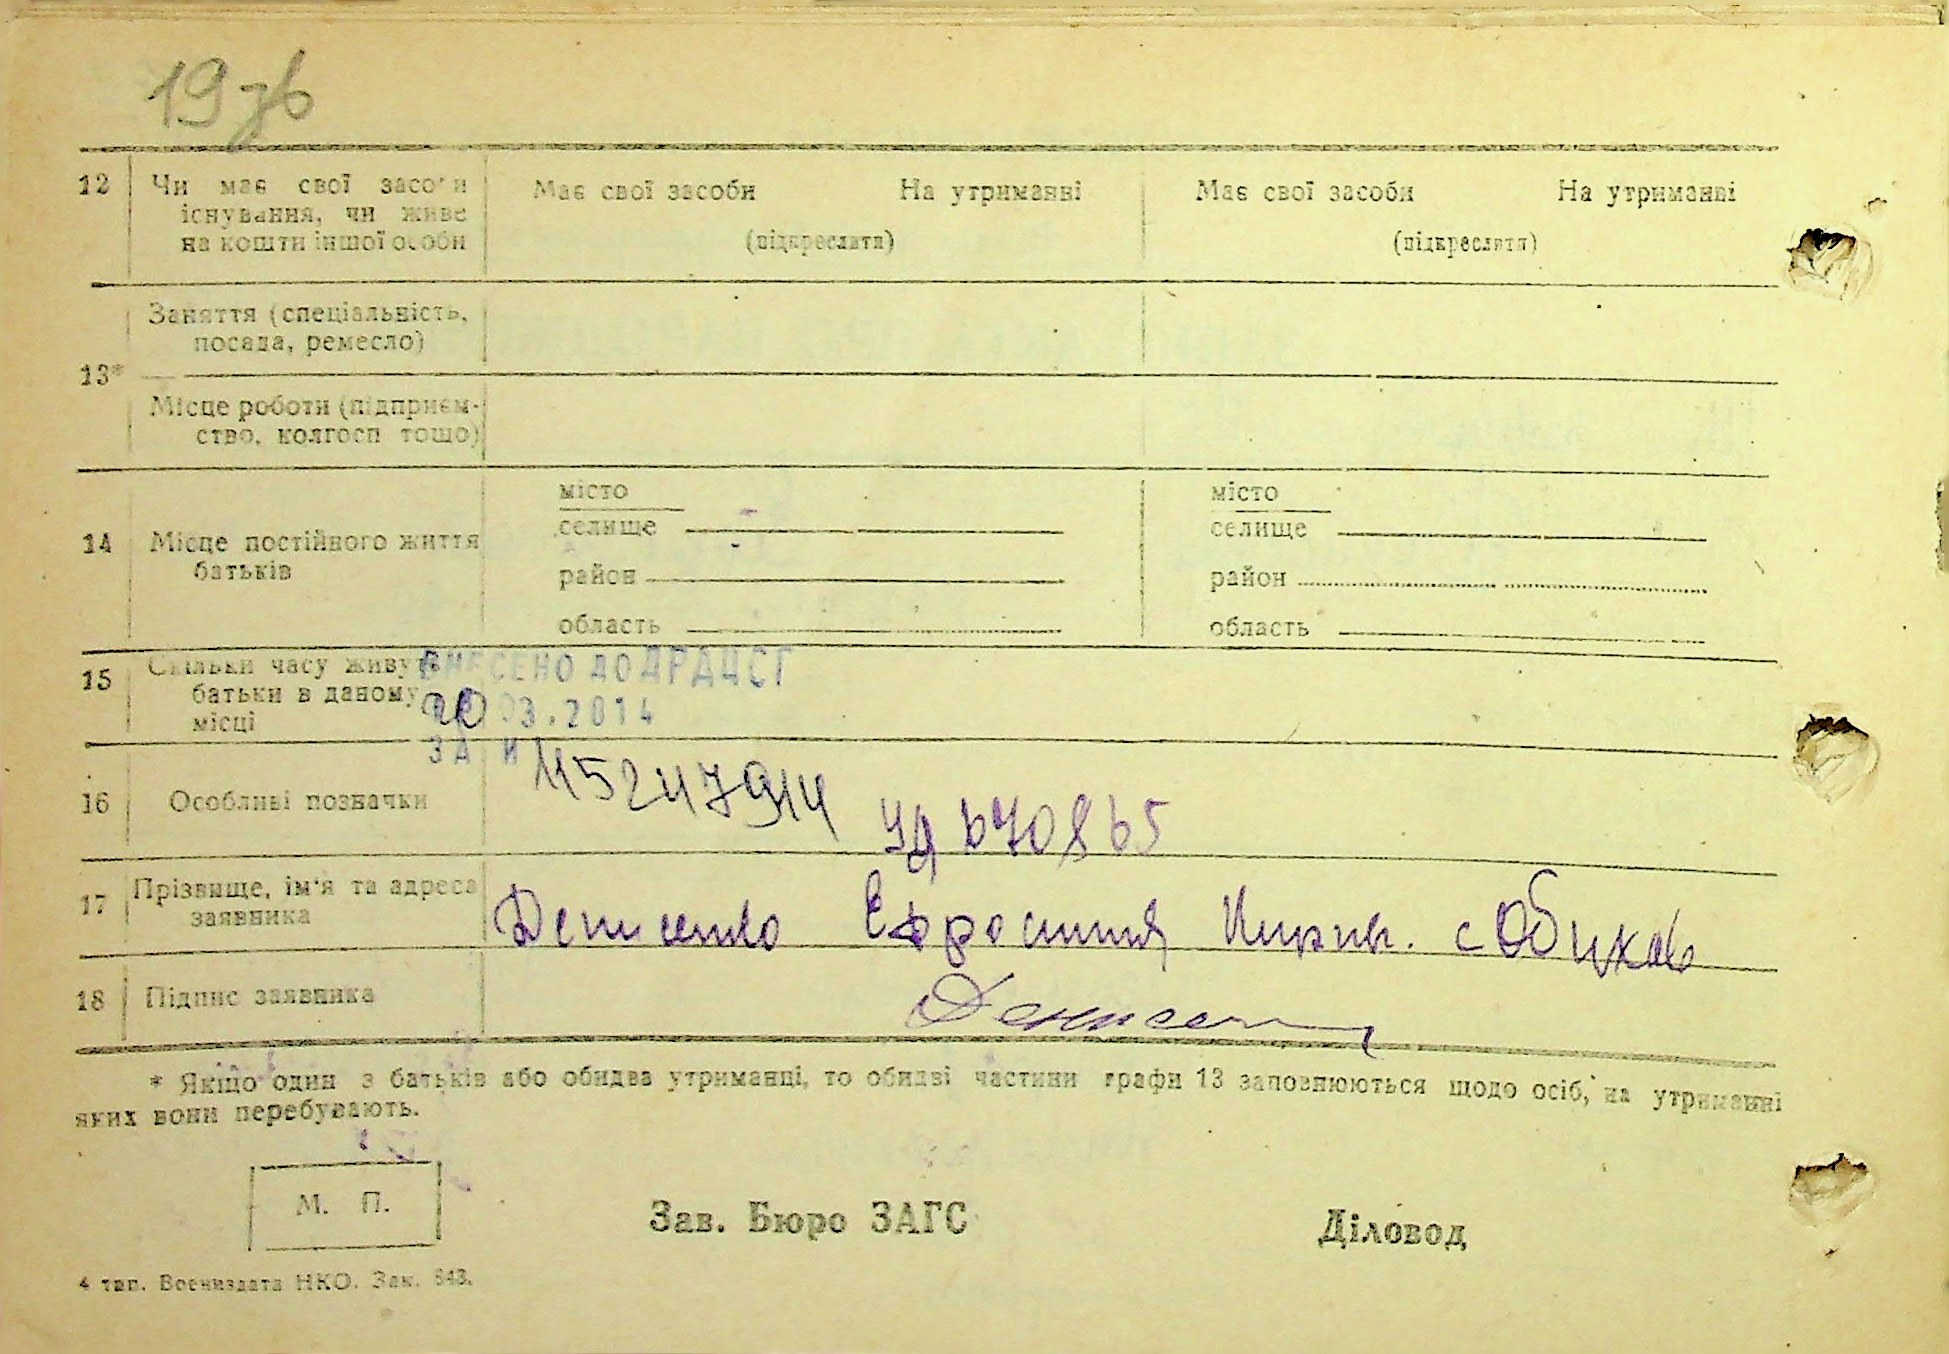 19 зв
12 Чи має свої засоби Має свої засоби На утриманні Має свої засоби На утриманні
існування, чи живе
на кошти іншої особи (підкреслити) (підкреслити)
Заняття (спеціальність,
посада, ремесло)
13*
Місце роботи (підприєм-
ство, колгосп тощо)
місто місто
селище селище
14 Місце постійного життя
батьків
район район
область область
15 Скільки часу живуть ВНЕСЕНО ДО ДРАЦСГ
батьки в даному 20 03.2014
місці
ЗА И 115247914
16 Особливі позначки
УД 670865
17 Прізвище, ім'я та адреса
заявника Денисенко Ефросиния с
18 Підпис заявника Денисен
* Якщо один з батьків або обидва утриманці, то обидві частини графи 13 заповнюються щодо осіб, на утриманні
яких вони перебувають.
М. П.
Зав. Бюро ЗАГС Діловод
4 тип. Воениздата НКО. Зак. 843.